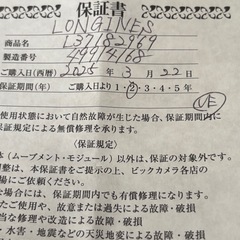 保証書
LONGINES
商品名 L37182969
製造番号 49914168
ご購入日(西暦) 2025年3月22日
保証期間(年) ご購入日より1・2・3・4・5年
使用状態において自然故障が生じた場合、保証期間内に
保証規定による無償修理を承ります。
〈保証規定〉
本(ムーブメント・モジュール)以外は、保証の対象外です。
態にて、本保証書をご提示の上、ビックカメラ各店の
にご依頼ください。
な場合には、保証期間内でも有償修理になります。
たのご使用、または過失による故障・破損
当な修理や改造による故障・破損
・水害・地震などの天災地変による故障・破損